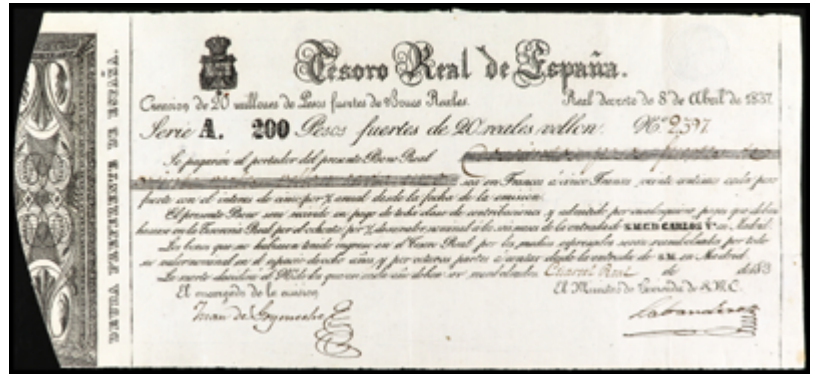 DEUDA PREFERENTE DE ESPAÑA.
Tesoro Real de España.
Creacion de 20 millones de Pesos fuertes de Bonos Reales. Real decreto de 8 de Abril de 1837.
Serie A. 200 Pesos fuertes de 20 reales vellon. Nº 2,597
Se pagarán al portador del presente Bono Real
sea en Francos á cinco Francos, veinte centimos cada peso
fuerte con el interes de cinco por % anual desde la fecha de la emision.
El presente Bono será recibido en pago de toda clase de contribuciones y admitido por cualesquiera pagos que deban
hacerse en la Tesoreria Real por el ochenta por % de su valor nominal á los seis meses de la entrada de S.M.C.D. CARLOS Vº en Madrid.
Los bonos que no hubiesen tenido ingreso en el Tesoro Real por los medios espresados seran reembolsados por todo
su valor nominal en el espacio de ocho años y por octavas partes á contar desde la entrada de S.M. en Madrid.
La suerte decidirá el Nº de los que en cada año deban ser reembolsados. Cuartel Real de de 183
El encargado de la emision, El Ministro de Hacienda de S.M.C.
Juan de Goyeneche Labandero